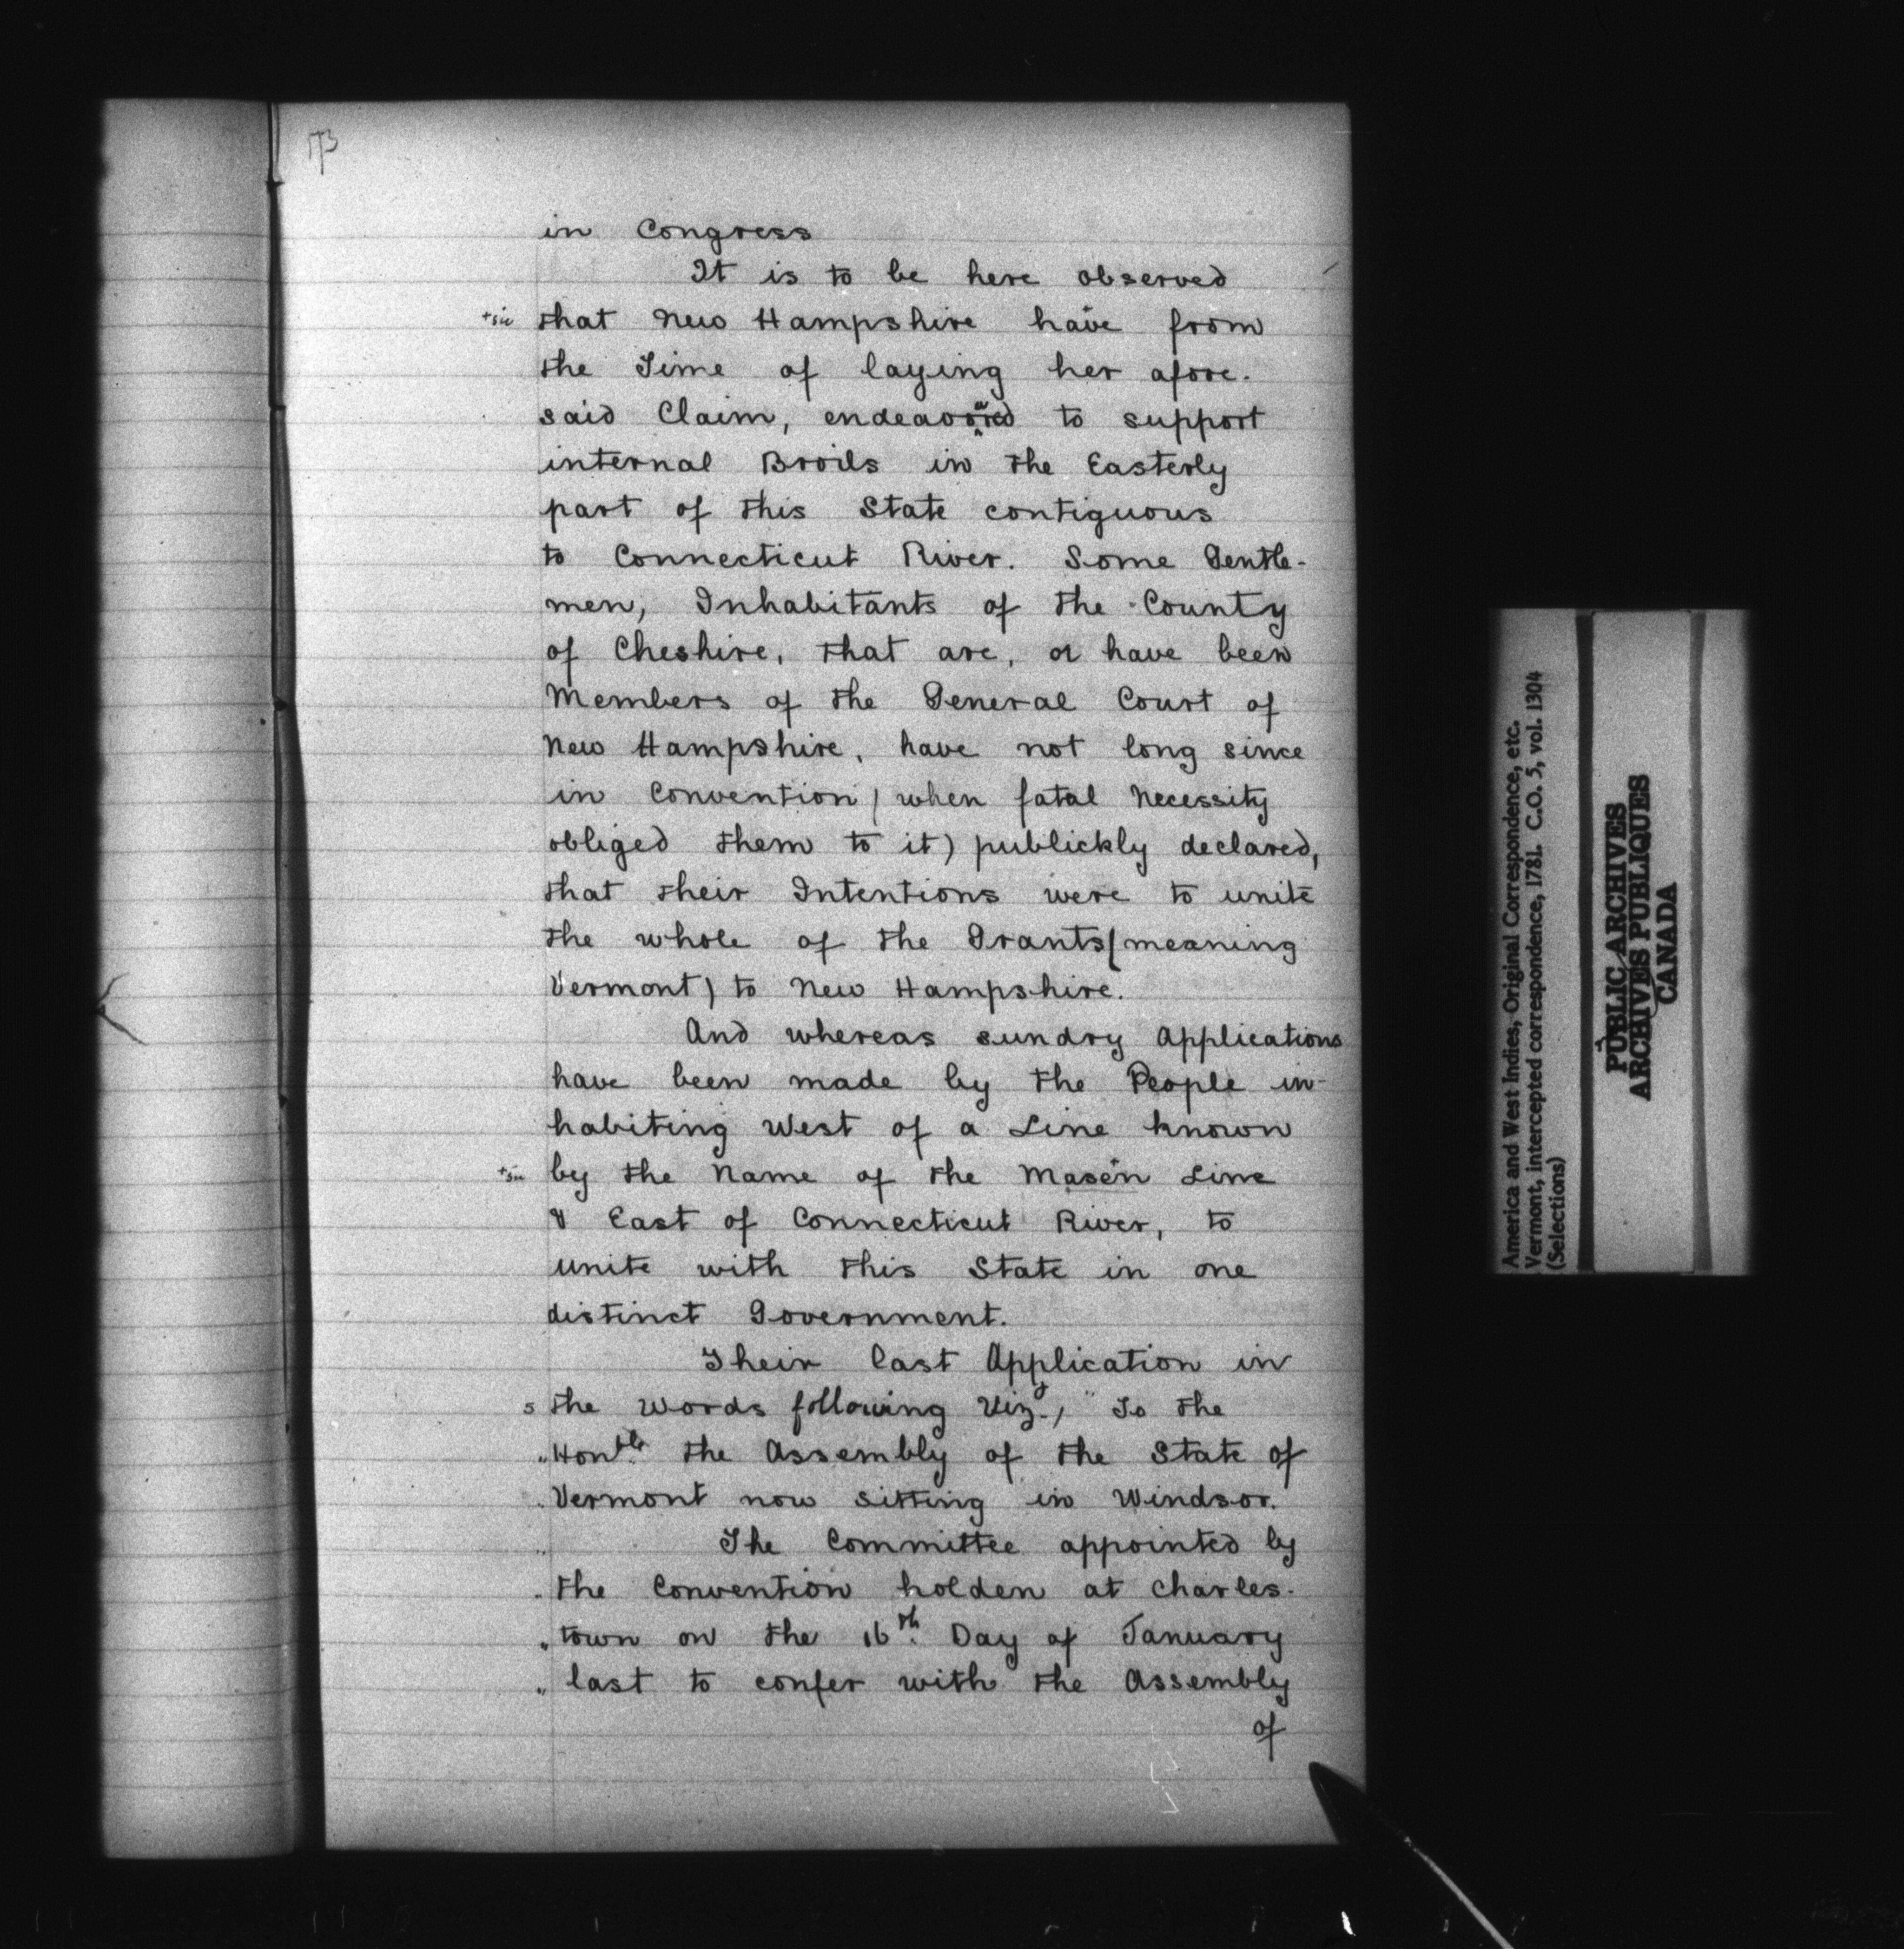 173
in Congress
It is to be here observed
+sic that New Hampshire have from
the Time of laying her afore-
said Claim, endeavoured to support
internal Broils in the Easterly
part of this State contiguous
to Connecticut River. Some Gentle-
men, Inhabitants of the County
of Cheshire, that are, or have been
Members of the General Court of
New Hampshire, have not long since
in Convention ( when fatal Necessity
obliged them to it) publickly declared,
that their Intentions were to unite
the whole of the Grants (meaning
Vermont) to New Hampshire.
And whereas sundry Applications
have been made by the People in-
habiting West of a Line known
+sic by the Name of the Mason Line
& East of Connecticut River, to
unite with this State in one
distinct Government.
Their last Application in
the Words following Vizt., "To the
"Honble. the Assembly of the State of
"Vermont now sitting in Windsor.
" The Committee appointed by
"the Convention holden at Charles-
"town on the 16th. Day of January
"last to confer with the Assembly
of
America and West Indies, Original Correspondence, etc.
Vermont, intercepted correspondence, 1781. C.O. 5, vol. 1304
(Selections)
PUBLIC ARCHIVES
ARCHIVES PUBLIQUES
CANADA